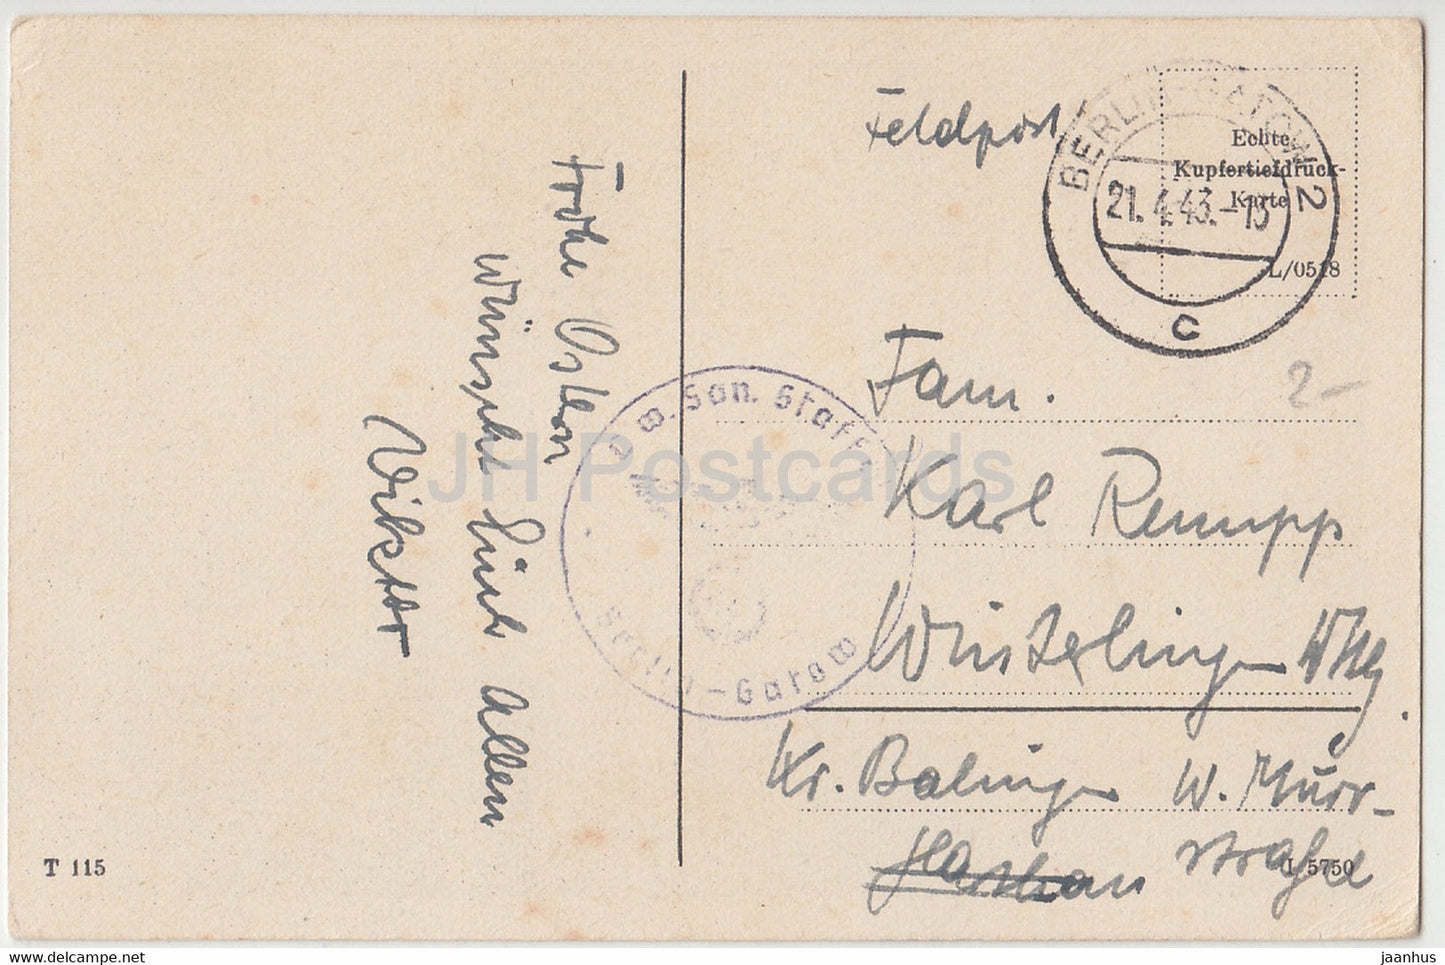 Frohe Ostern
wünscht Euch Allen
Viktor
Feldpost
BERLIN-GATOW 2
21.4.43.-13
c
Echte
Kupfertiefdruck-
Karte
L/0518
2-
w. San. Staff
Berlin-Gatow
Fam.
Karl Rempp
Winterlingen Wttg.
Kr. Balingen W. Murr-
strasse
T 115
I 5750
JH Postcards
www.jaanhus.com
jaanhus